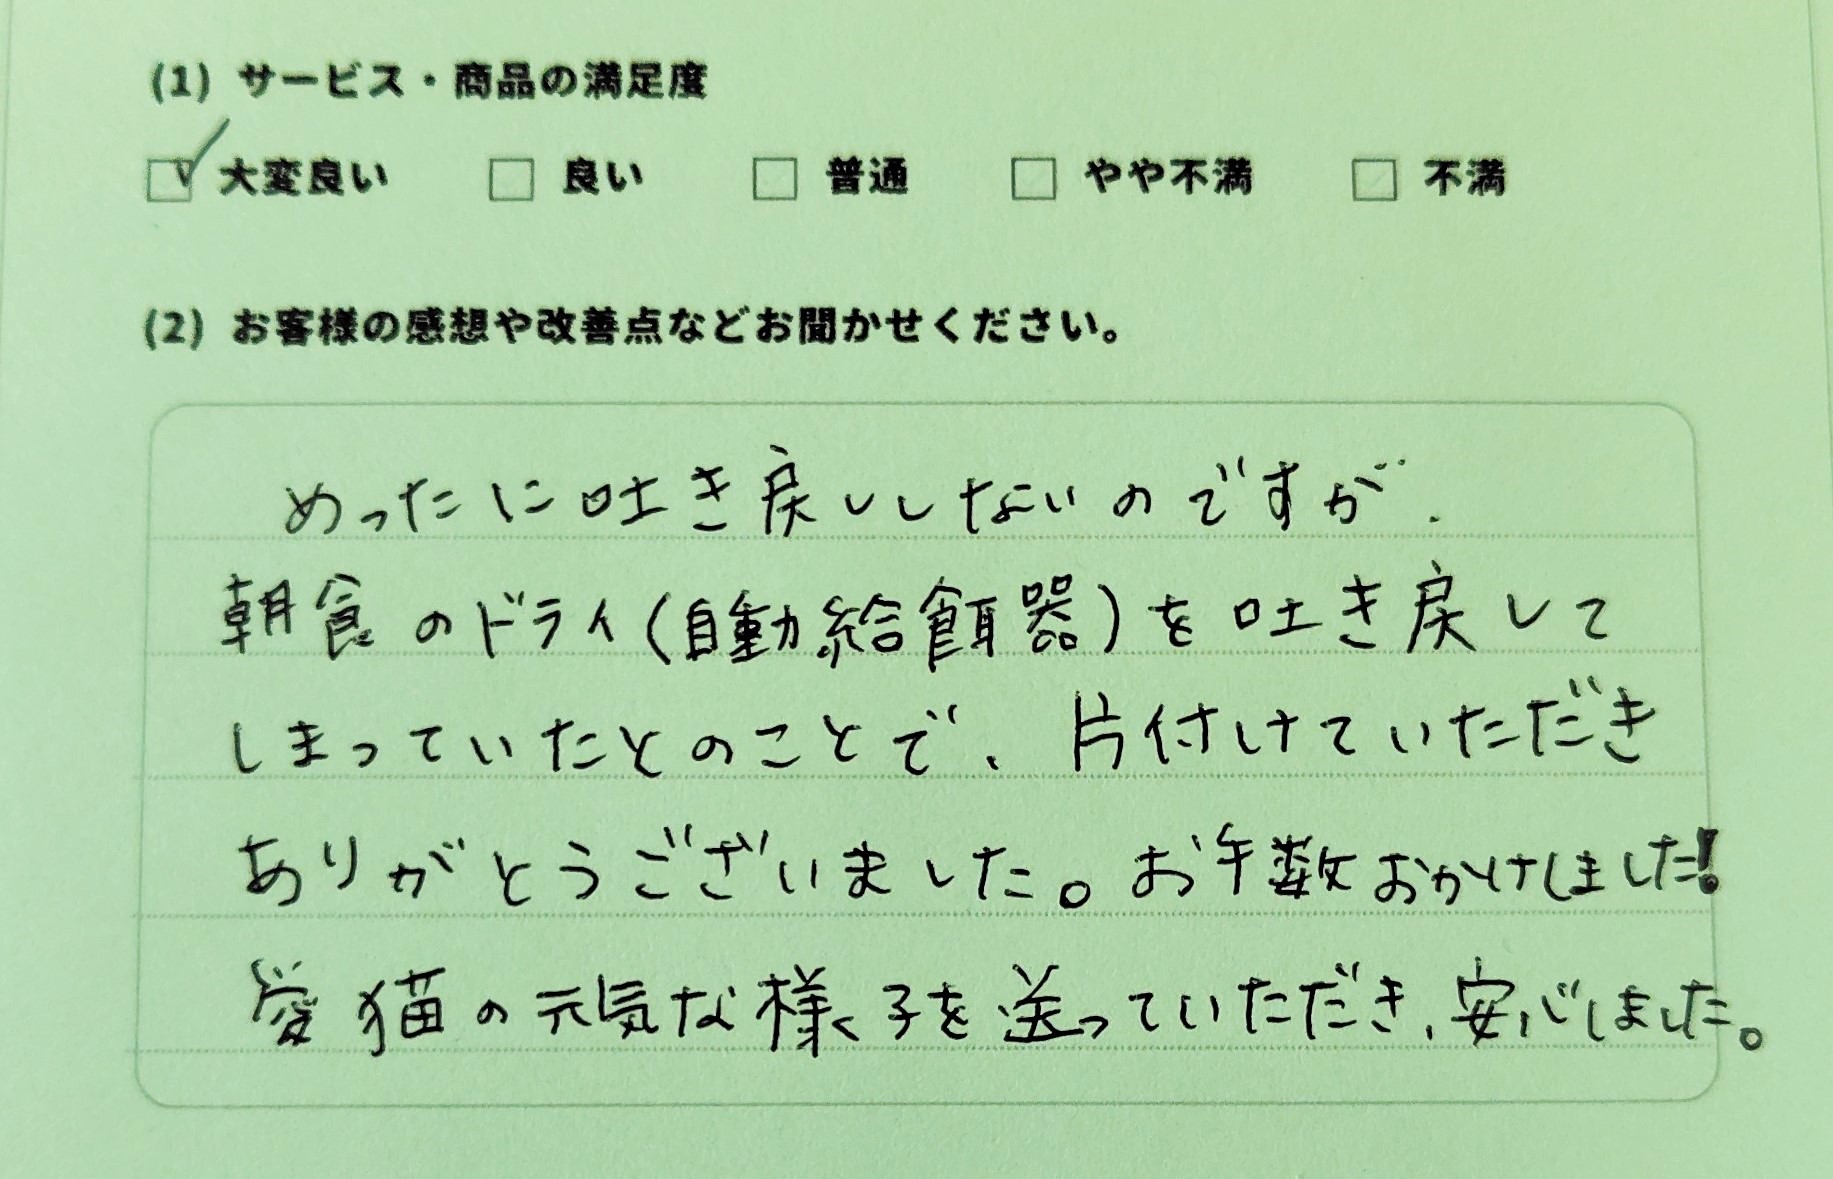 (1) サービス・商品の満足度
☑ 大変良い □ 良い □ 普通 □ やや不満 □ 不満
(2) お客様の感想や改善点などお聞かせください。
めったに吐き戻ししないのですが、
朝食のドライ(自動給餌器)を吐き戻して
しまっていたとのことで、片付けていただき
ありがとうございました。お手数おかけしました!
愛猫の元気な様子を送っていただき、安心しました。